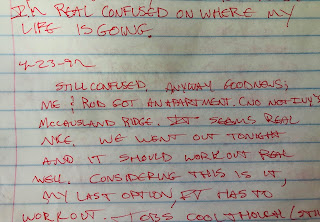 I'm REAL CONFUSED ON WHERE MY
LIFE IS GOING.
4-23-92
STILL CONFUSED, ANYWAY GOODNEWS;
ME & ROD GOT AN APARTMENT. (NO NOT
MCCAUSLAND RIDGE. IT SEEMS REAL
NICE. WE WENT OUT TONIGHT
AND IT SHOULD WORK OUT REAL
WELL. CONSIDERING THIS IS IT,
MY LAST OPTION, IT HAS TO
WORKOUT. JOBS COOL